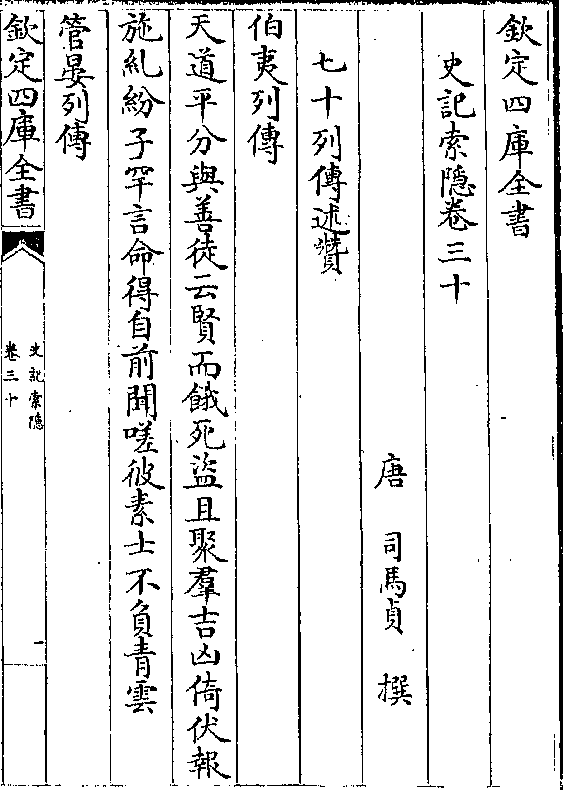 欽定四庫全書
史記索隠卷三十
唐 司馬貞 撰
七十列傳述贊
伯夷列傳
天道平分與善徒云賢而餓死盜且聚羣吉凶倚伏報
施糺紛子罕言命得自前聞嗟彼素士不負青雲
管晏列傳
欽定四庫全書
史記索隠
卷三十